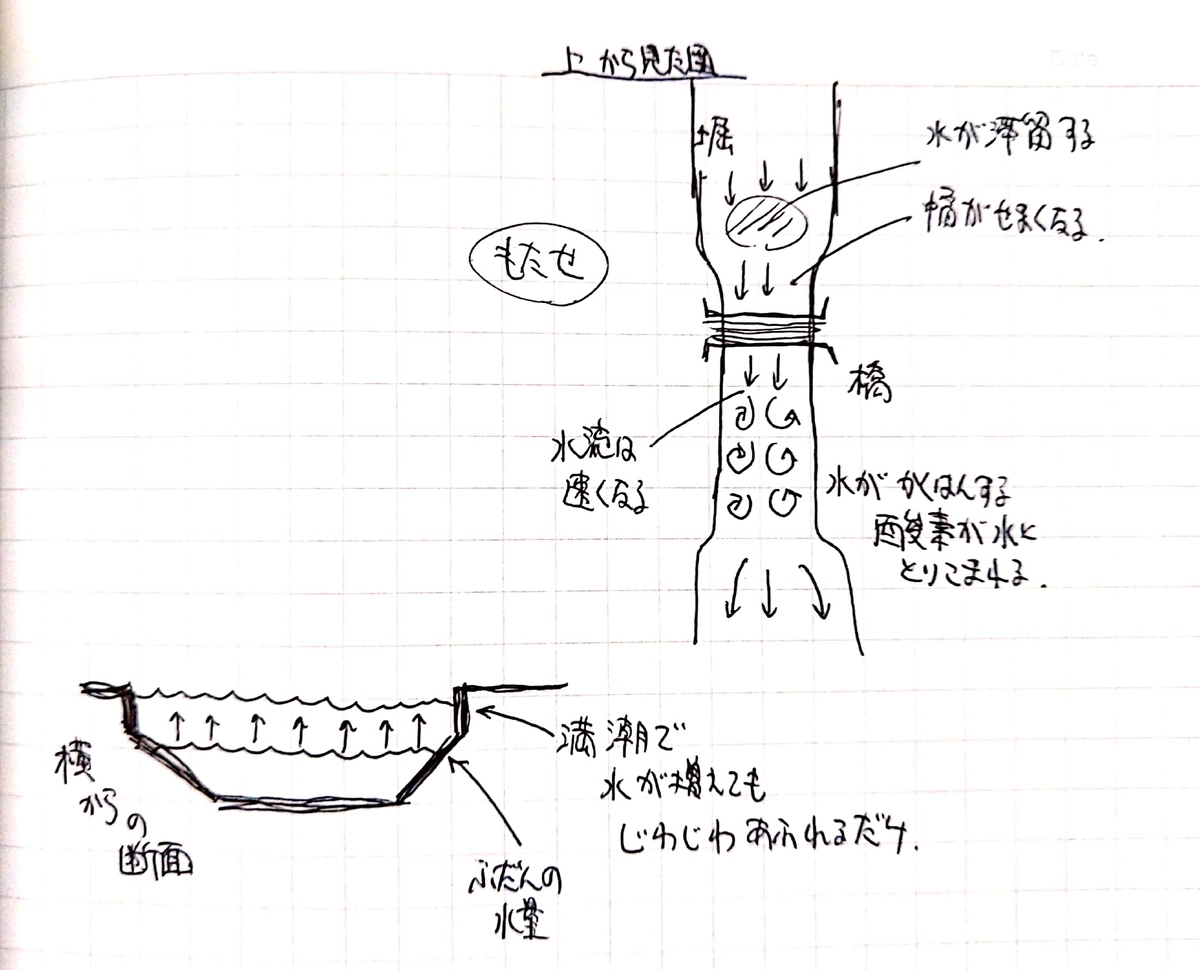 上から見た図
Date
堀
水が滞留する
幅がせまくなる.
もたせ
橋
水流は
速くなる
水がかくはんする
酸素が水に
とりこまれる.
満潮で
水が増えても
じわじわあふれるだけ.
横
からの
断面
ふだんの
水量